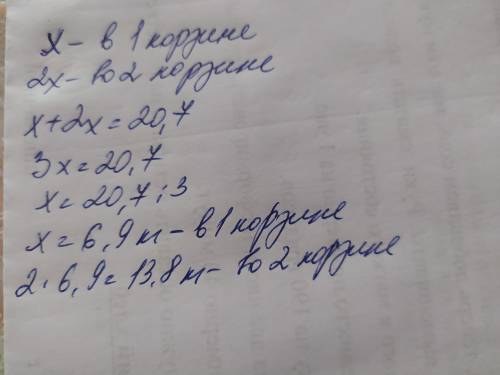 x – в 1 корзине
2x – во 2 корзине
x+2x=20,7
3x=20,7
x=20,7:3
x=6,9 к – в 1 корзине
2·6,9=13,8 к – во 2 корзине